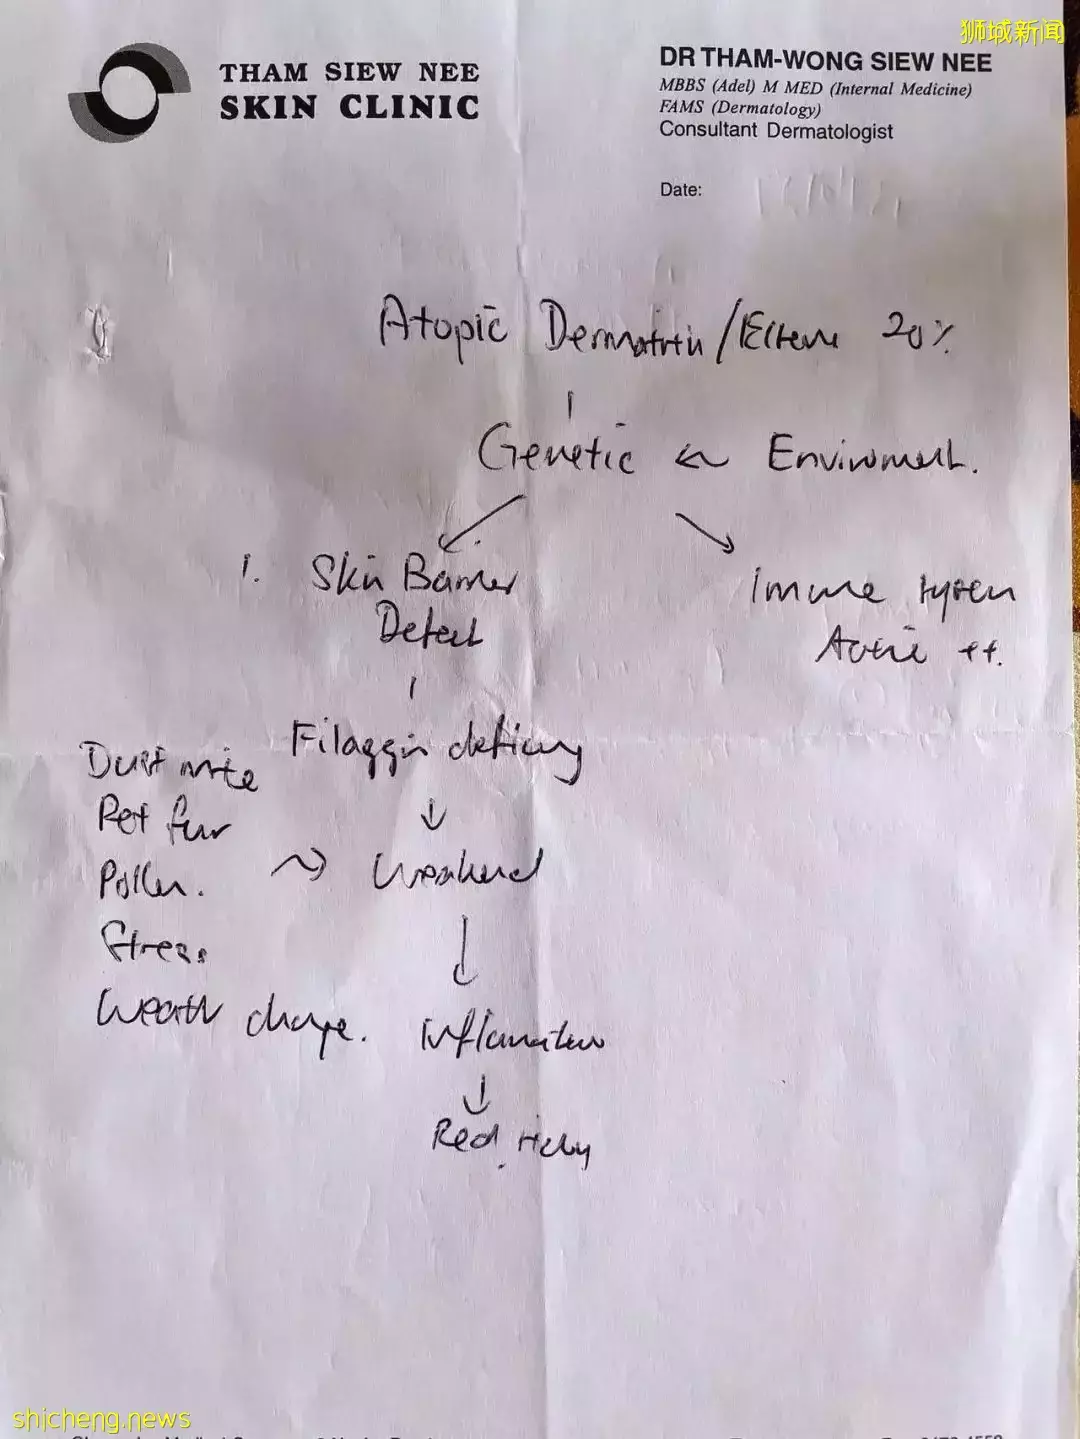 狮城新闻
THAM SIEW NEE
SKIN CLINIC
DR THAM-WONG SIEW NEE
MBBS (Adel) M MED (Internal Medicine)
FAMS (Dermatology)
Consultant Dermatologist
Date:
Atopic Dermatitis / Eczema 20%
Genetic Environment.
1. Skin Barrier
Defect
Immune system
Active ++.
Filaggrin deficiency
Dust mite
Pet fur
Pollen.
Weakened
Stress
Weather change.
inflammation
Red, itchy
shicheng.news